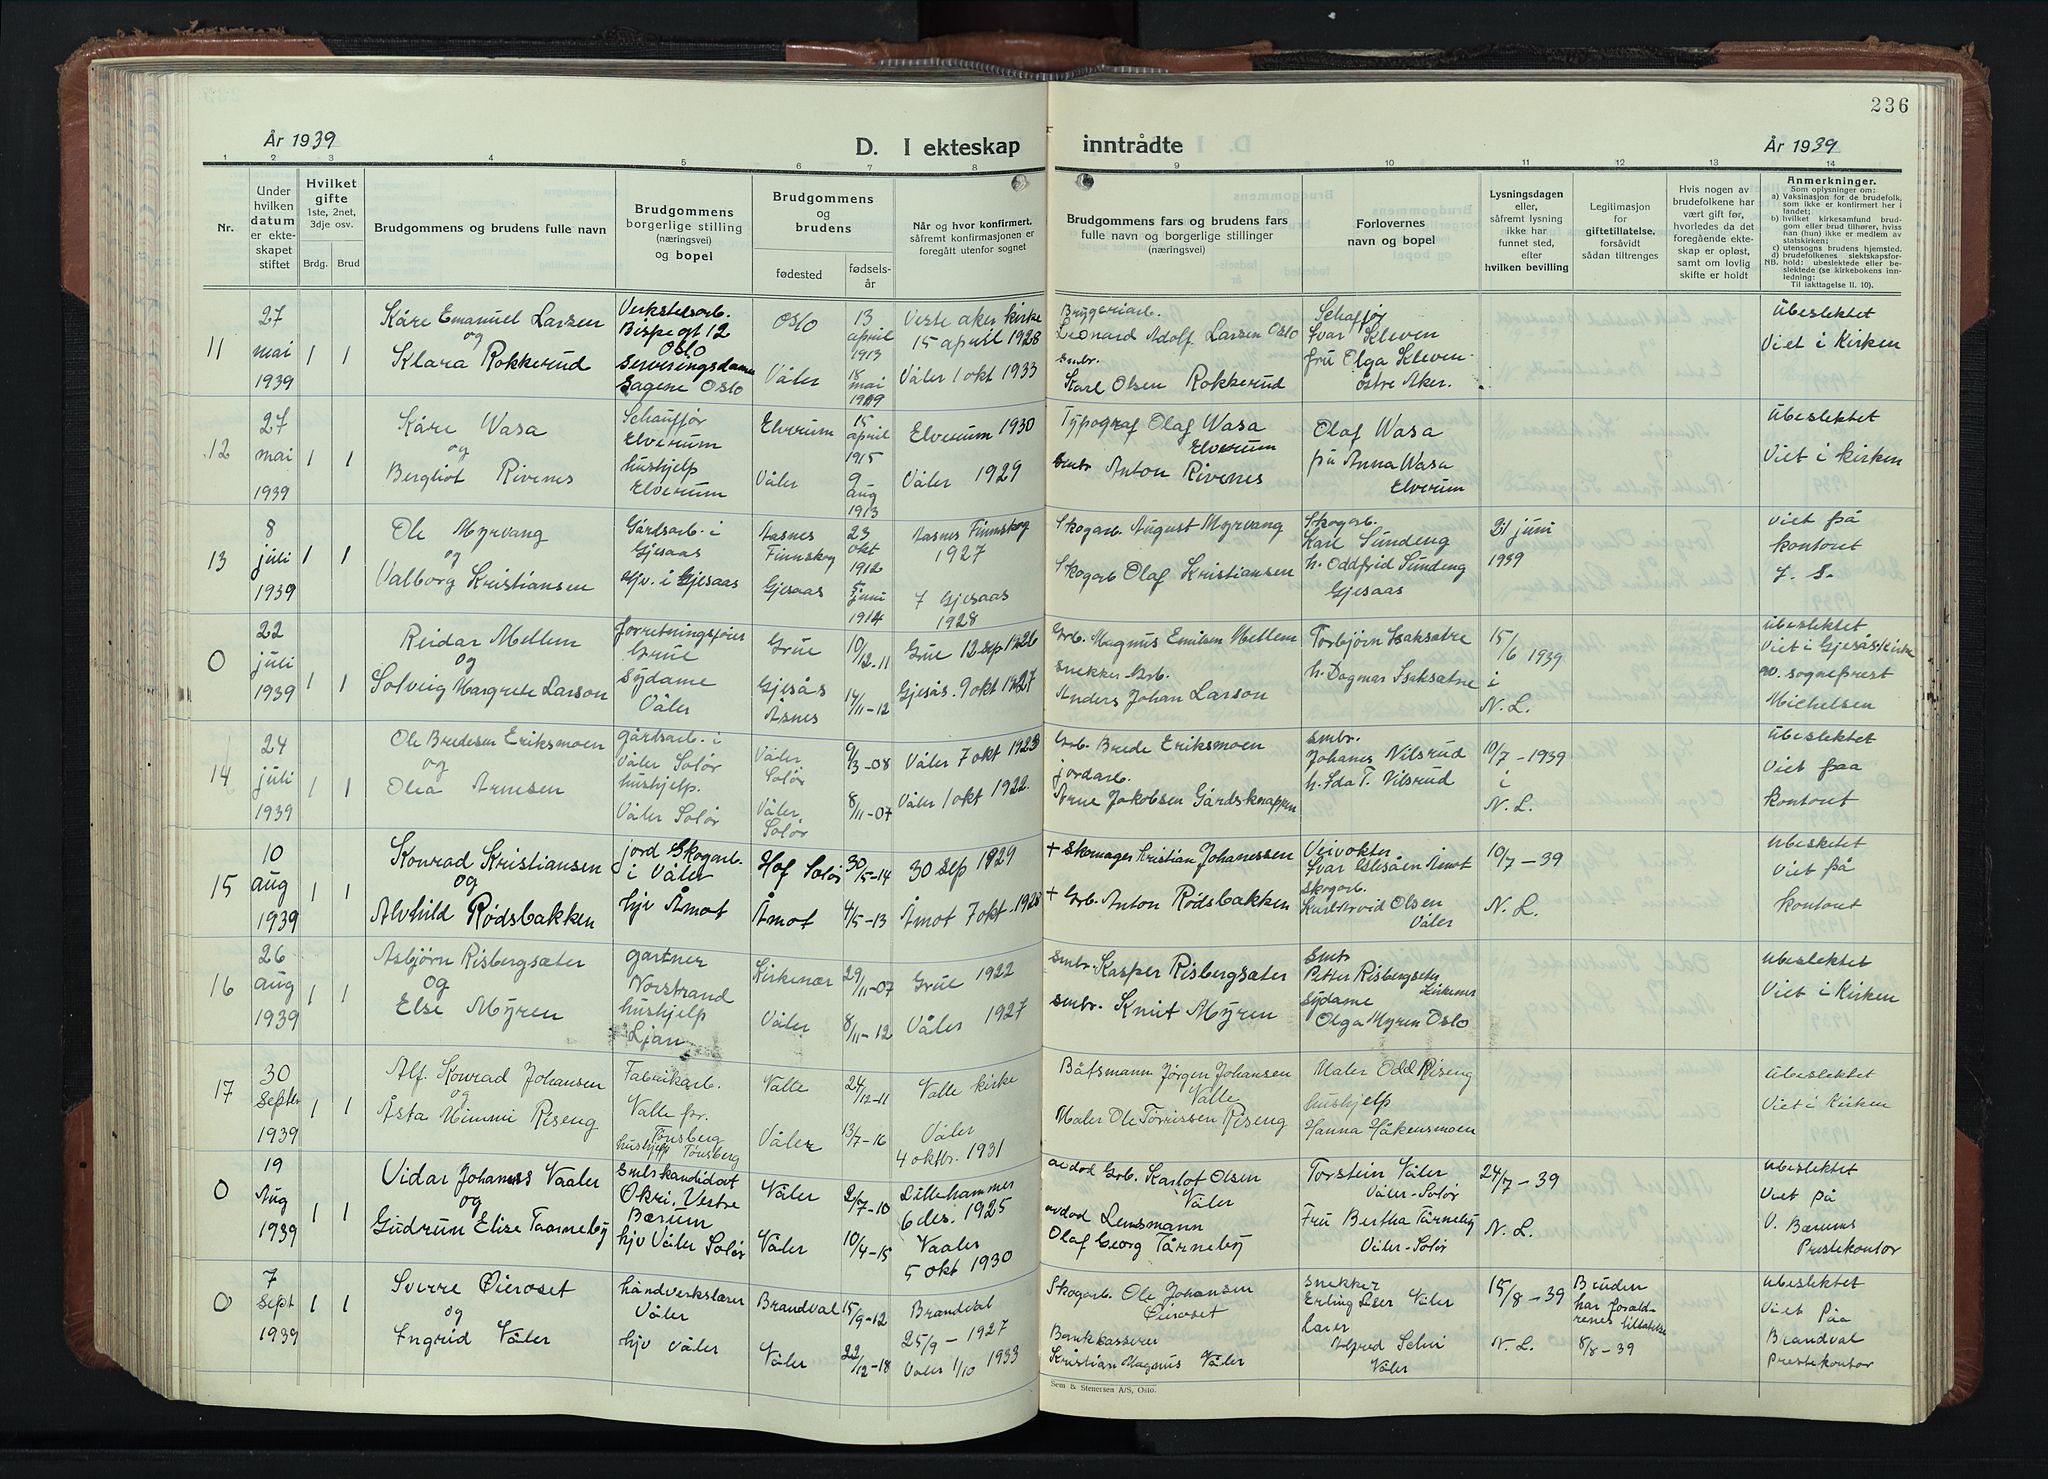 236
År 1939
D. I ekteskap
inntrådte
År 1939
1 2 3 4 5 6 7 8 9 10 11 12 13 14
Nr.
Under
hvilken
datum
er ekte-
skapet
stiftet
Hvilket
gifte
1ste, 2net,
3dje osv.
Brdg. Brud
Brudgommens og brudens fulle navn
Brudgommens
borgerlige stilling
(næringsvei)
og bopel
Brudgommens
og
brudens
fødested
fødsels-
år
Når og hvor konfirmert,
såfremt konfirmasjonen er
foregått utenfor sognet
Brudgommens fars og brudens fars
fulle navn og borgerlige stillinger
(næringsvei)
Forlovernes
navn og bopel
Lysningsdagen
eller,
såfremt lysning
ikke har
funnet sted,
efter
hvilken bevilling
Legitimasjon
for
giftetillatelse,
forsåvidt
sådan tiltrenges
Hvis nogen av
brudefolkene har
vært gift før,
hvorledes da det
foregående ekte-
skap er opløst,
samt om lovlig
skifte er holdt
Anmerkninger.
Som oplysninger om:
a) Vaksinasjon for de brudefolk,
som ikke er konfirmert her i
landet;
b) hvilket kirkesamfund brud-
gom eller brud tilhører, hviss
han (hun) ikke er medlem av
statskirken;
c) utensogns brudens hjemsted.
d) brudefolkenes slektskapsfor-
NB. hold: ubeslektede eller be-
slektede (se kirkebokens inn-
ledning;
Til iakttagelse II. 10).
11
27
mai
1939
1 1
Kåre Emanuel Larsen
og
Klara Rokkerud
Verkstedsarb.
Bispegt 12
Oslo
Serveringsdame
Sagene Oslo
Oslo
Våler
13
april
1913
18
mai
1919
Vestre aker kirke
15 april 1928
Våler 1 okt 1933
Bryggeriarb.
Leonard Adolf Larsen Oslo
Smbr.
Karl Olsen Rokkerud
Schaffør
Ivar Kleven
fru Olga Kleven
Østre Aker.
Ubeslektet
Viet i Kirken
12
27
mai
1939
1 1
Kåre Wasa
og
Bergliot Rivenes
Schauffør
Elverum
hushjelp
Elverum
Elverum
Våler
15
april
1915
9
aug
1913
Elverum 1930
Våler 1929
Typograf Olaf Wasa
Elverum
Smbr Anton Rivenes
Olaf Wasa
fru Anna Wasa
Elverum
Ubeslektet
Viet i kirken
13
8
juli
1939
1 1
Ole Myrvang
og
Valborg Kristiansen
Gårdsarb. i
Gjesaas
hjv. i Gjesaas
Aasnes
Finnskog
Gjesaas
23
okt
1912
5
juni
1914
Aasnes Finnskog
1927
Gjesaas
1928
Skogarb. August Myrvang
Skogarb Olaf Kristiansen
Skogarb.
Kare Sundeng
h. Oddfrid Sundeng
Gjesaas
21 juni
1939
Viet på
kontoret
0
22
juli
1939
1 1
Reidar Mellem
og
Solveig Margrete Larson
forretningsfører
Grue
Sydame
Våler
Grue
Gjesås
Åsnes
10/12-11
14/11-12
Grue 12 sep 1926
Gjesås. 9 okt 1927
Grb. Magnus Emilsen Mellem
Snekker Grb.
Anders Johan Larson
Torbjørn Isaksætre
h. Dagmar Isaksætre
15/6 1939
i
N. L.
Ubeslektet
Viet i Gjesås Kirke
av. sogneprest
Michelsen
14
24
juli
1939
1 1
Ole Bredesen Eriksmoen
og
Olea Arnesen
gårdsarb. i
Våler Solør
hushjelp.
Våler Solør
Våler
Solør
Våler,
Solør
9/3-08
8/11-07
Våler 7 okt 1923
Våler 1 okt 1922.
Grb. Brede Eriksmoen
jordarb.
Arne Jakobsen Gårdsknappen
Smbr.
Johanes Nilsrud
h. Ida T. Nilsrud
10/7-1939
i
N. L.
Ubeslektet
Viet paa
kontoret
15
10
aug
1939
1 1
Konrad Kristiansen
og
Alvhild Rødsbakken
jord Skogarb.
i Våler
hjv Åmot
Hof Solør
Åmot
30/5-14
4/5-13
30 sep 1929
Åmot 7 okt. 1928
+ Skomager Kristian Johanessen
+ Grb. Anton Rødsbakken
Veivokter
Ivar Glesåen Åmot
Skogarb.
Karl Arvid Olsen
Våler
10/7-39
N. L.
Ubesketet
Viet på
kontoret
16
26
aug
1939
1 1
Asbjørn Risbergsæter
og
Else Myren
gartner
Norstrand
hushjelp
Ljan
Kirkenær
Våler
29/11-07
8/11-12
Grue 1922
Våler 1927
Smbr. Kasper Risbergsæter
Smbr. Knut Myren
Smbr
Petter Risbergseter
Kirkenær
Sydame
Olga Myren Oslo
Ubeslektet
Viet i Kirken
17
30
Septbr
1939
1 1
Alf. Konrad Johansen
og
Åsta Mimmi Riseng
Fabrikarb.
Valle pr.
Tønsberg
hushjelp Tønsberg
Valle
Våler
24/12-11
13/7-16
Valle kirke
Våler
4 oktbr. 1931
Båtsmann Jørgen Johansen
Valle
Maler Ole Torrissen Riseng
Maler Odd Riseng
hushjelp
Hanna Håkensmoen
Ubeslektet
Viet i Kirken
0
19
Aug
1939
1 1
Vidar Johannes Vaaler
og
Gudrun Elise Taarneby
Smlskandidat
Okri. Vestre
Bærum
hjv Våler Solør
Våler
Våler
2/7-10
10/4-15
Lillehammer
6 des. 1925
Vaaler
5 okt 1930
avdød Grb. Karlot Olsen
Våler
avdød Lensmann
Olaf Georg Tårneby
Torstein Våler
Våler-Solør
Fru Bertha Tårneby
Våler-Solør
24/7-39
N. L.
Ubeslektet
Viet på
V. Bærums
Prestekontor
0
7
Sept
1939
1 1
Sverre Øieroset
og
Ingrid Våler
håndverkslærer
Våler
hjv Våler
Brandval
Våler
15/9-12
22/12-18
Brandval
25/9-1927
Våler 1/10 1933
Skogarb. Ole Johansen
Øieroset
Bankkasserer
Kristian Magnus Våler
Snekker
Erling Lier Våler
Lærer
Alfred Schii
Våler
15/8-39
N. L.
Bruden
har foreld-
renes tillatelse
8/8-39
Ubeslektet
Viet Paa
Brandval
Prestekontor
Sem & Stenersen A/S, Oslo.